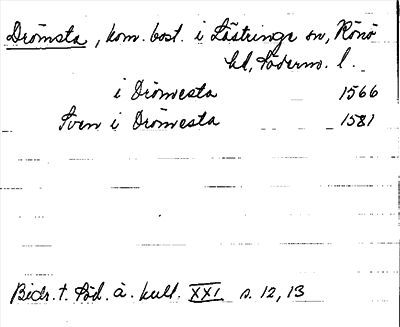 Drömsta, kom. bost. i Lästringe sn, Rönö
hd, Söderm. l.
i Drömesta 1566
Sven i Drömesta 1581
Bidr. t. Söd. ä. kult. XXI s. 12, 13